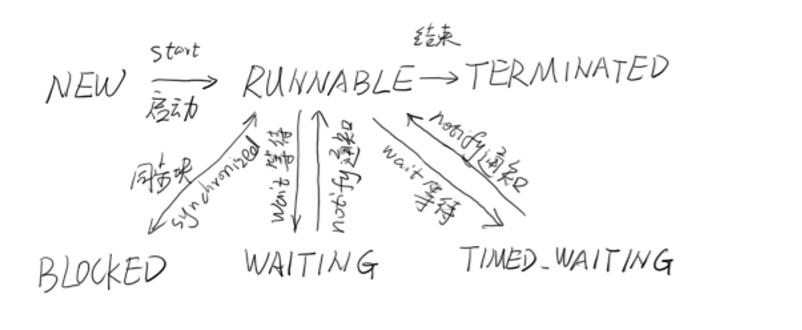 start
结束
NEW
启动
RUNNABLE
TERMINATED
同步块
synchronized
wait 等待
notify通知
wait 等待
notify通知
BLOCKED
WAITING
TIMED_WAITING